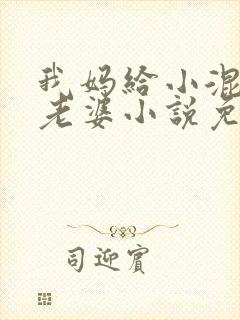 我妈给小混
老婆小説免
司迎賓